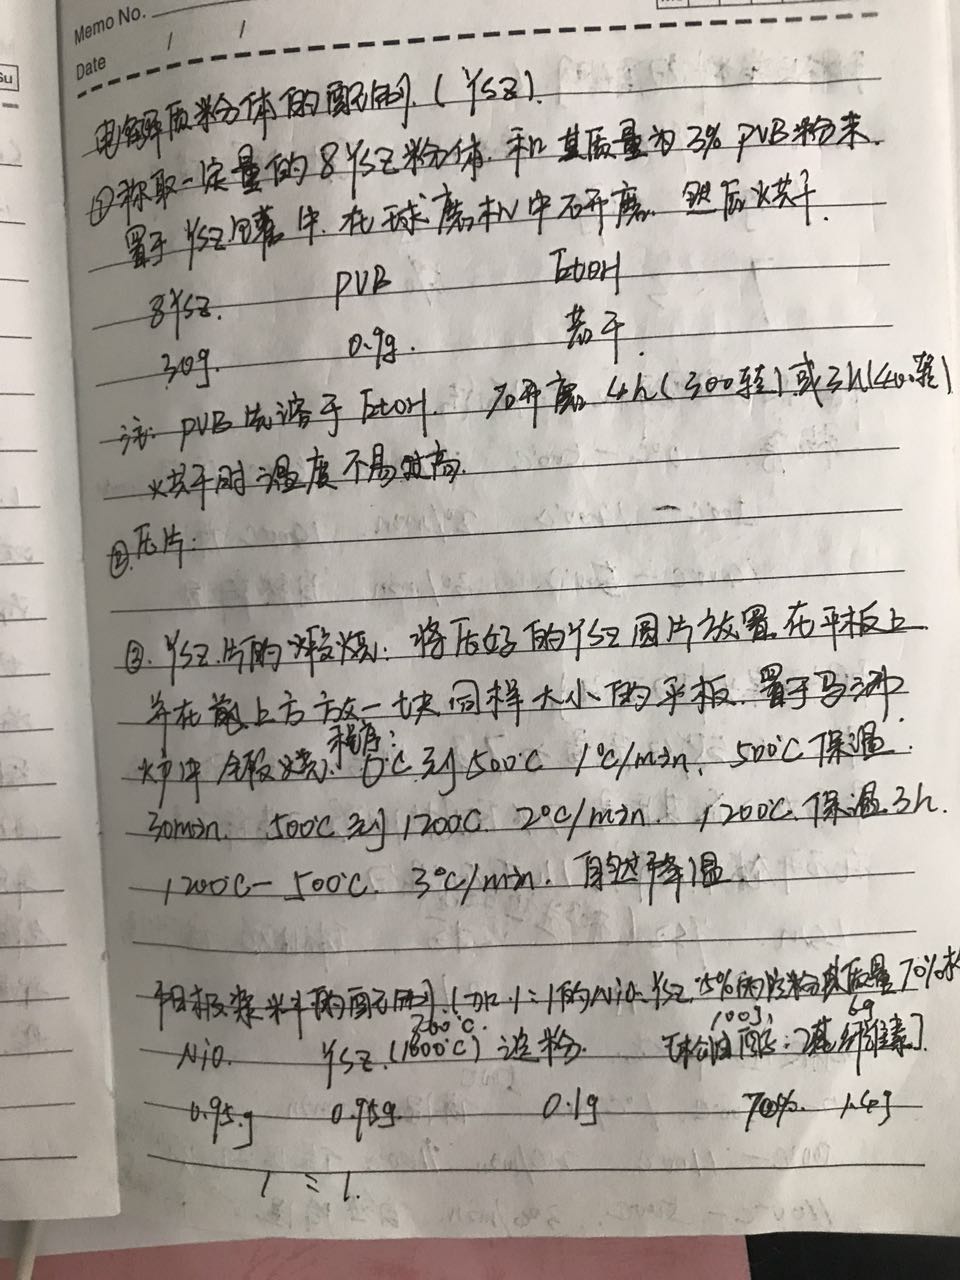 Memo No.
Date / /
Su
电解质粉体的配制.(YSZ).
①称取一定量的8YSZ粉体.和其质量为3% PVB粉末.
置于YSZ 中.在球磨机中研磨.然后烘干.
8YSZ. PVB EtOH
30g. 0.9g. 若干.
注: PVB先溶于EtOH. 研磨4h(300转)或3h(400转)
烘干时温度不易过高.
②.压片:
③.YSZ片的煅烧:将压好的YSZ圆片放置在平板上
并在 上方放一块同样大小的平板.置于马沸
炉中煅烧.程序:0℃到500℃ 1℃/min, 500℃保温
30min. 500℃到1200℃. 2℃/min. 1200℃.保温3h.
1200℃-500℃. 3℃/min. 自然降温.
阳极浆料的配制.(加1:1的NiO. YSZ. 5%的淀粉 质量70%
360℃. 100g, 6g
NiO. YSZ.(1600℃) 淀粉. [松油醇:乙基纤维素]
0.95g 0.95g. 0.1g 70%. 1.4g
1 : 1.